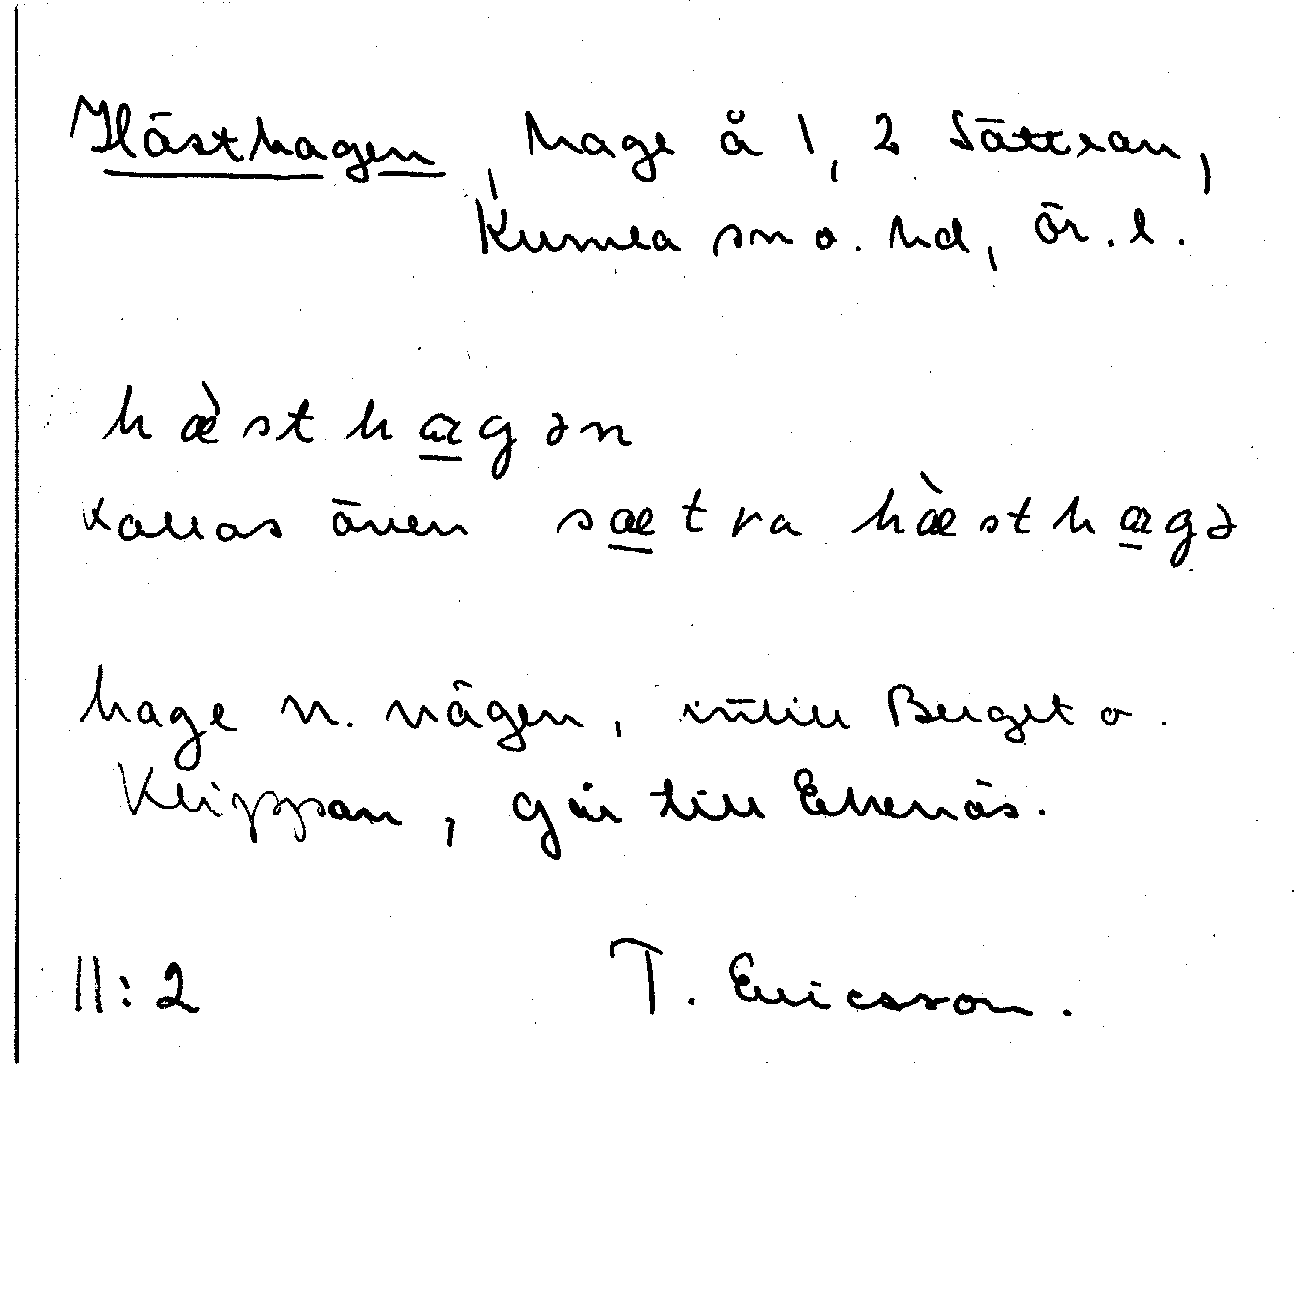 Hästhagen, hage å 1, 2 Sättran,
Kumla sn o. hd, Ör. l.
hæ̀sthagən
kallas även sætra hæ̀sthagə
hage n. vägen, intill Berget o.
Klippan, går till Ekenäs.
11:2 T. Ericsson.